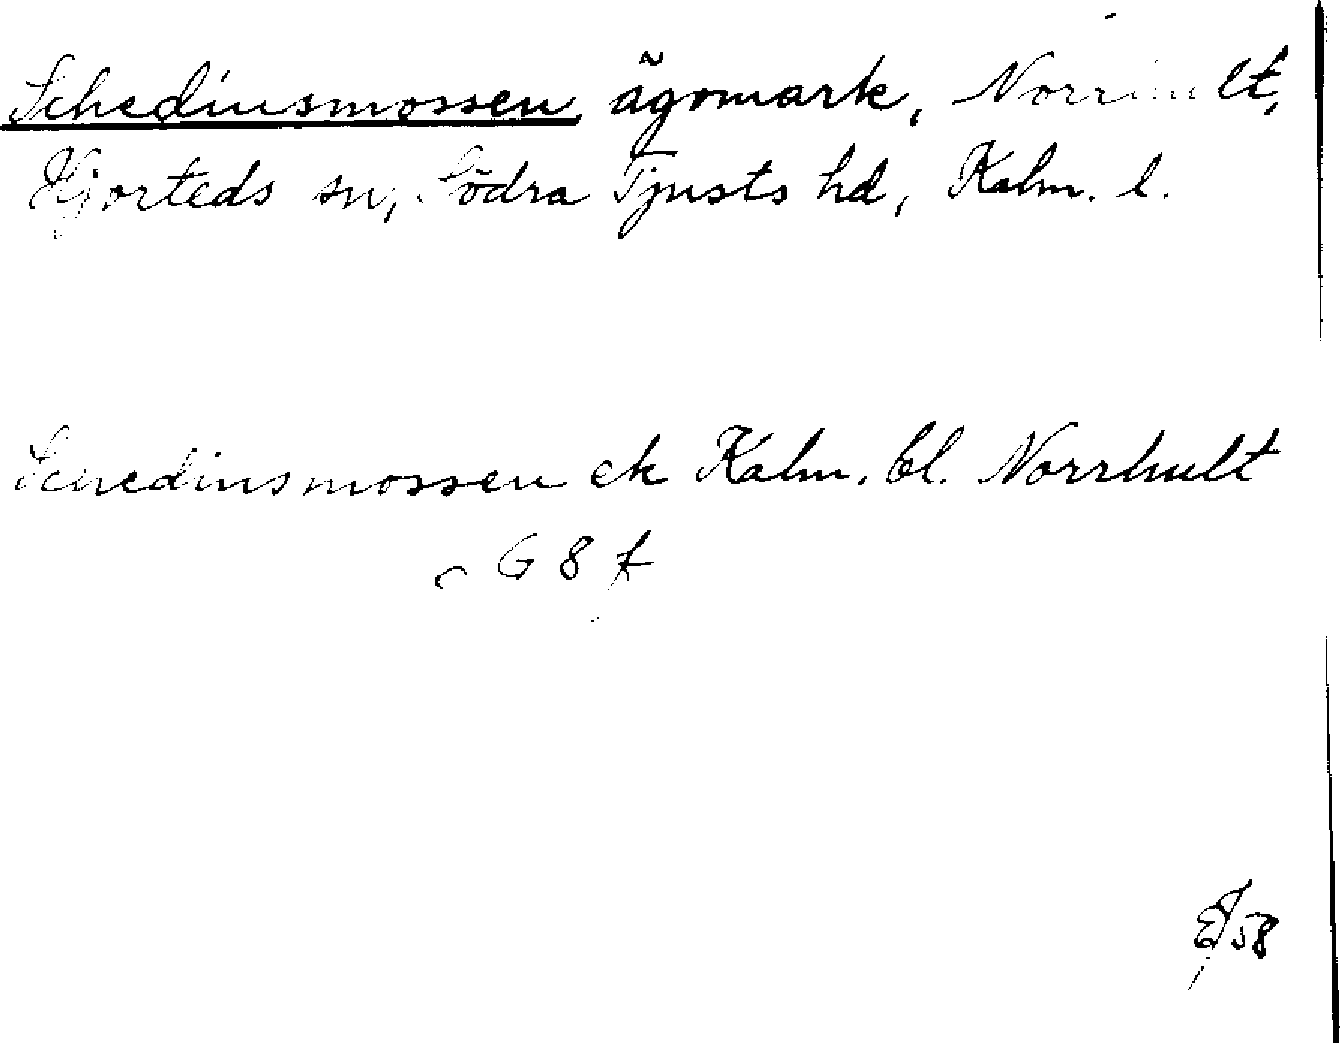 Schediusmossen, ägomark, Norrhult,
Hjorteds sn, Södra Tjusts hd, Kalm. l.
Schediusmossen ek Kalm. bl. Norrhult
G 8 f
58